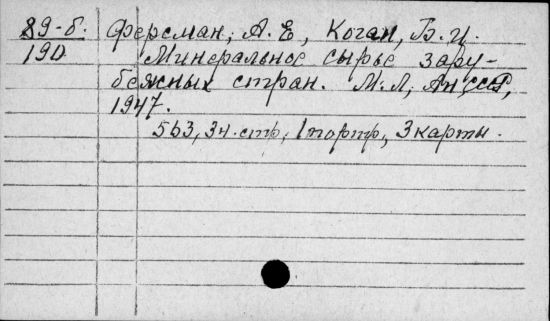 89-б. Ферсман, А. Е., Коган, Б. И.
190 Минеральное сырье зару-
бежных стран. М.Л, Ан СССР,
1947.
563, 3н. стр, 1 портр, 3 карты.